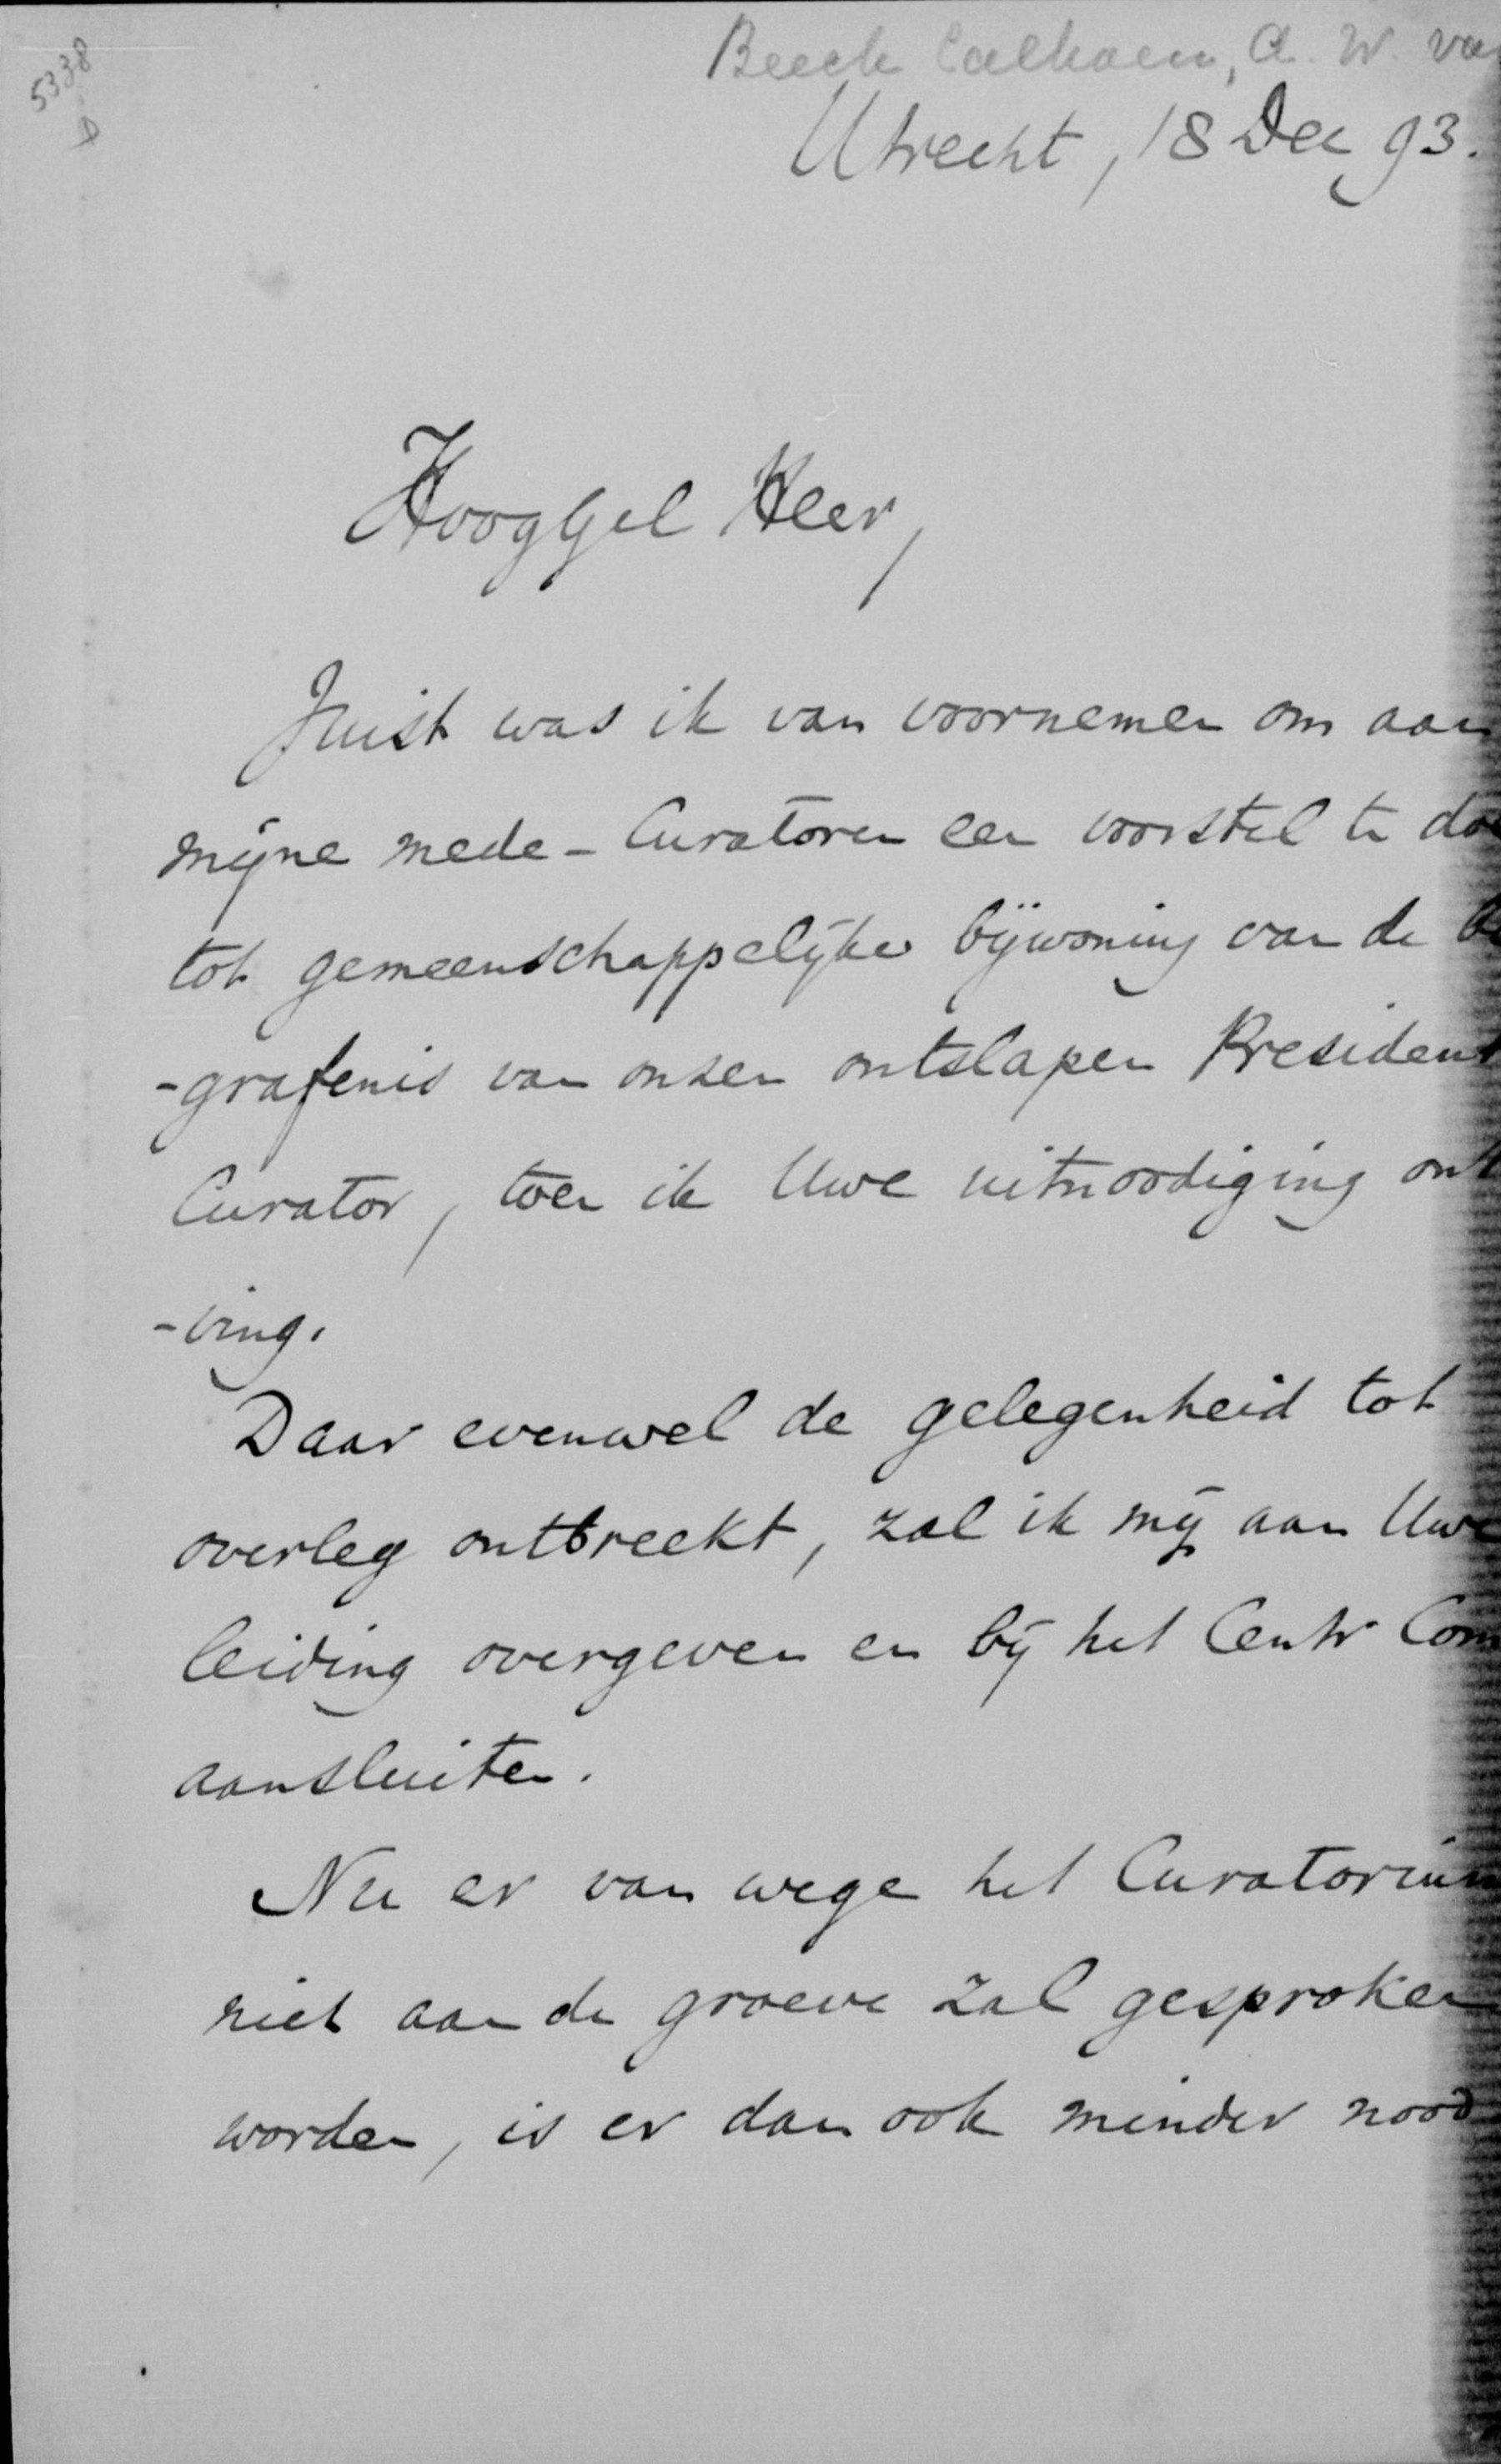 5338
D
Beeck Calkoen, A. W. va
Utrecht, 18 Dec 93.
HoogGel Heer,
Juist was ik van voornemen om aan
mijne mede-Curatoren een voorstel te doe
tot gemeenschappelijke bijwoning van de be
-grafenis van onzen ontslapen President
Curator, toen ik Uwe uitnoodiging ont
-ving.
Daar evenwel de gelegenheid tot
overleg ontbreekt, zal ik mij aan Uwe
leiding overgeven en bij het Centr Com
aansluiten.
Nu er van wege het Curatorium
niet aan de groeve zal gesproken
worden, is er dan ook minder nood